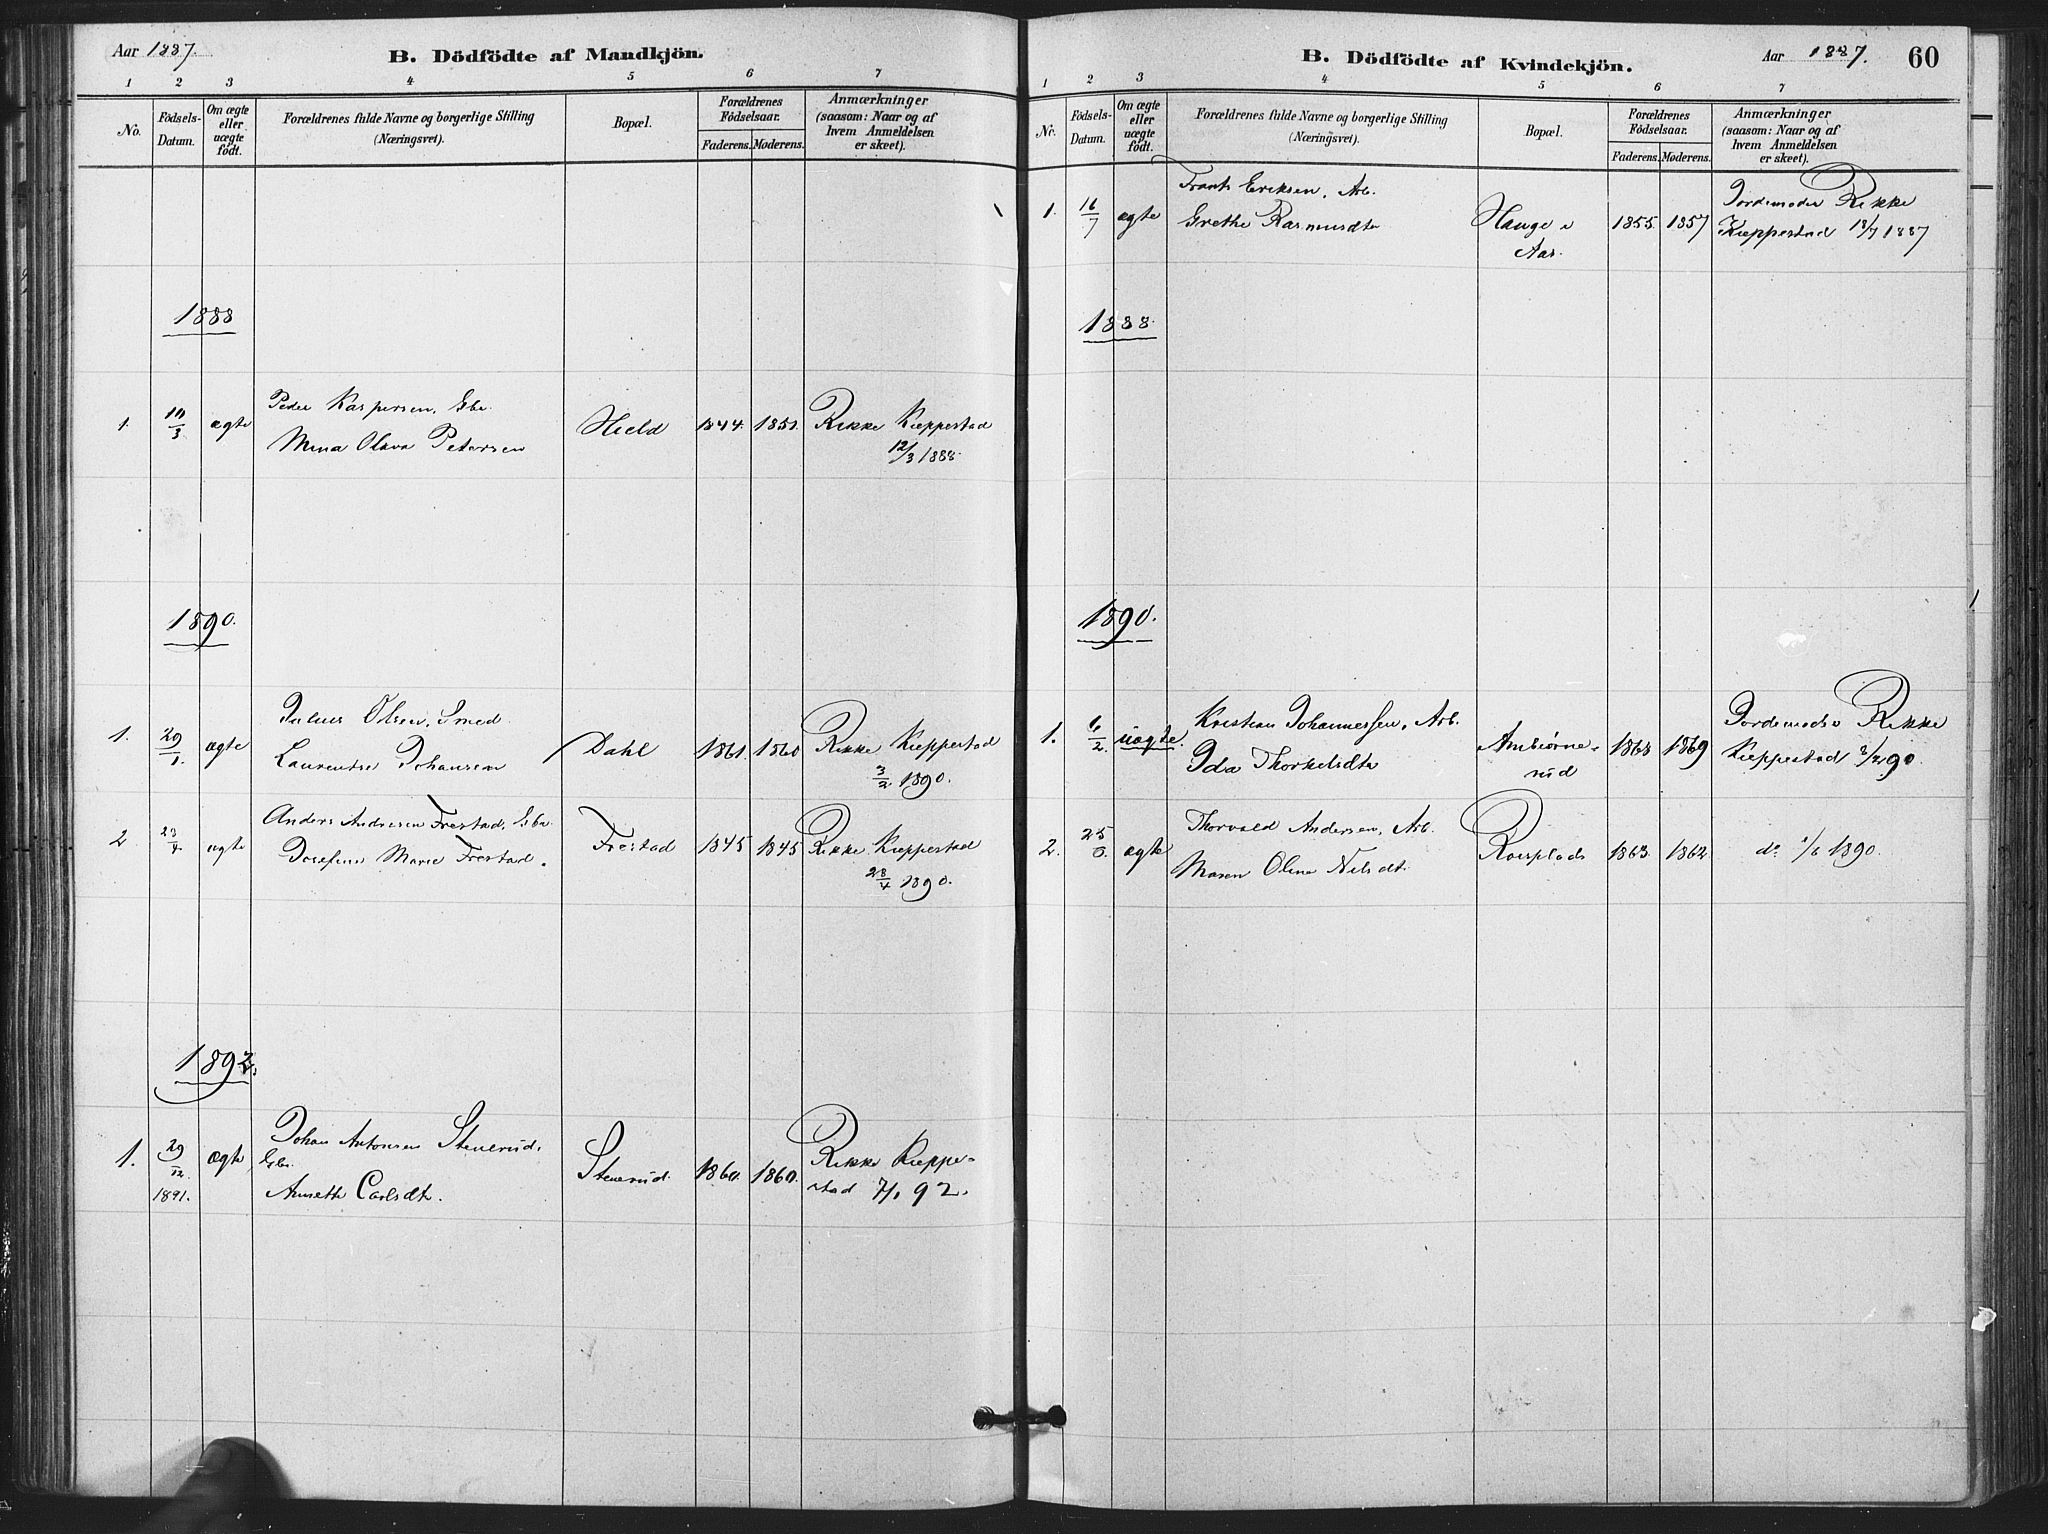 Aar 1887.
B. Dödfödte af Mandkjön.
1 2 3 4 5 6 7
No.
Födsels-
Datum.
Om ægte
eller
uægte
födt.
Forældrenes fulde Navne og borgerlige Stilling
(Næringsvei).
Bopæl.
Forældrenes
Födselsaar.
Faderens. Moderens.
Anmærkninger
(saasom: Naar og af
hvem Anmeldelsen
er skeet).
1888
1. 10/3 ægte
Peder Kaspersen, Gbr.
Mina Olava Petersen
Hield
1844. 1851.
Rikke Kieppestad
12/3 1888.
1890.
1. 29/1 ægte
Julius Olsen, Smed.
Laurentse Johansen
Dahl
1861. 1860
Rikke Kieppestad
3/2 1890.
2 23/4 ægte
Anders Andresen Frestad, Gbr.
Josefine Marie Frestad.
Frestad
1845 1845
Rikke Kieppestad
28/4 1890.
1892.
1. 29/12 1891. ægte
Johan Antonsen Stenerud,
Gbr.
Annethe Carlsdt.
Stenerud.
1860. 1860.
Rikke Kieppe-
stad 7/1 92.
B. Dödfödte af Kvindekjön.
Aar 1887.
60
1 2 3 4 5 6 7
Nr.
Födsels-
Datum.
Om ægte
eller
uægte
födt.
Forældrenes fulde Navne og borgerlige Stilling
(Næringsvei).
Bopæl.
Forældrenes
Födselsaar.
Faderens. Moderens.
Anmærkninger
(saasom: Naar og af
hvem Anmeldelsen
er skeet).
1. 16/7 ægte
Frants Eriksen, Arb.
Grethe Rasmusdtr
Hauge i
Aas.
1855. 1857
Jordemoder Rikke
Kieppestad 18/7 1887
1888.
1890.
1. 6/2 uægte.
Kristian Johannessen, Arb.
Ida Thorkelsdtr
Ambiørns-
rud
1868 1869
Jordemoder Rikke
Kieppestad 8/2 90.
2. 25/ ægte
Thorvald Andersen, Arb.
Maren Oline Nilsdt.
1863. 1862.
do 1/6 1890.